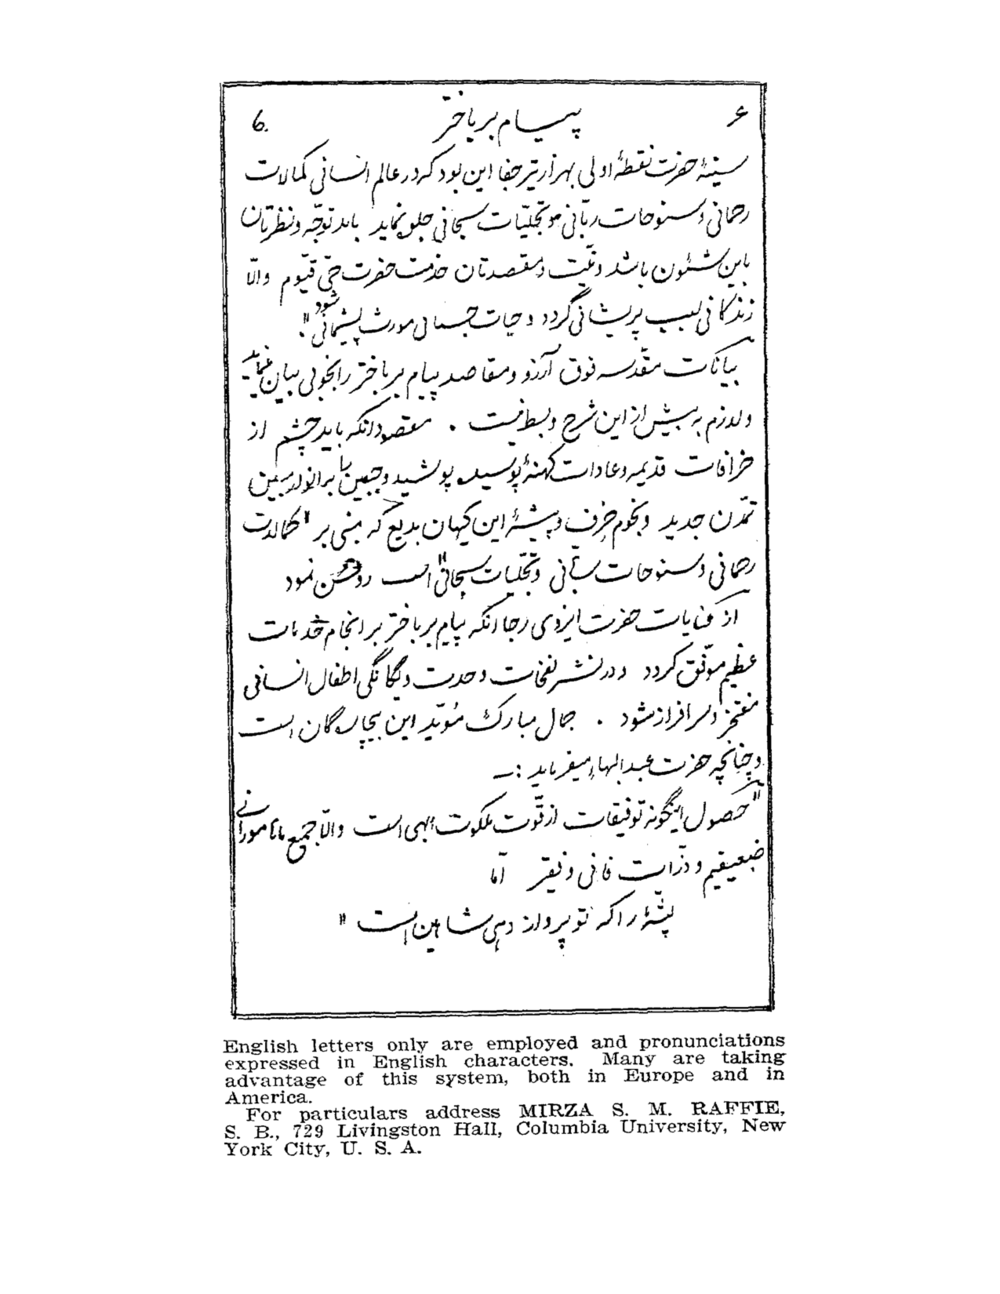 6. پیام بر باختر ۶
سینهٔ حضرت نقطهٔ اولی بهزار تیر جفا این بود که در عالم انسانی کمالات
رحمانی و سنوحات ربّانی و تجلیّات سبحانی جلوه نماید باید توجّه و نظرتان
باین شئون باشد و نیّت و مقصدتان خدمت حضرت حیّ قیّوم والّا
زندگانی سبب پریشانی گردد و حیات جسمانی مورث پشیمانی شود".
بیانات مقدّسه فوق آرزو و مقاصد پیام بر باختر را بخوبی بیان مینماید
و لازم به بیش از این شرح و بسط نیست . مقصود آنکه باید چشم از
خرافات قدیمه و عادات کهنهٔ پوسیده پوشید و جبین را بر انوار مبین
تمدّن جدید و نجوم حِرف و پیشهٔ این کیهان بدیع که مبنی بر "کمالات
رحمانی و سنوحات ربّانی و تجلّیات سبحانی" است روشن نمود
از عنایات حضرت ایزدی رجا آنکه پیام بر باختر بر انجام خدمات
عظیم موفّق گردد و در نشر نفحات وحدت و یگانگی اطفال انسانی
مفتخر و سرافراز شود . جمال مبارک مُویّد این بیچاره‌گان است
و چنانچه حضرت عبدالبهاء میفرماید :ـ
"حصول اینگونه توفیقات از قوّت ملکوت الهی است والّا جمیع ماها مورانی
ضعیفیم و ذرّات فانی و فقیر امّا
پشّهٔ را که تو پرواز دهی شاهین است"
English letters only are employed and pronunciations
expressed in English characters. Many are taking
advantage of this system, both in Europe and in
America.
For particulars address MIRZA S. M. RAFFIE,
S. B., 729 Livingston Hall, Columbia University, New
York City, U. S. A.